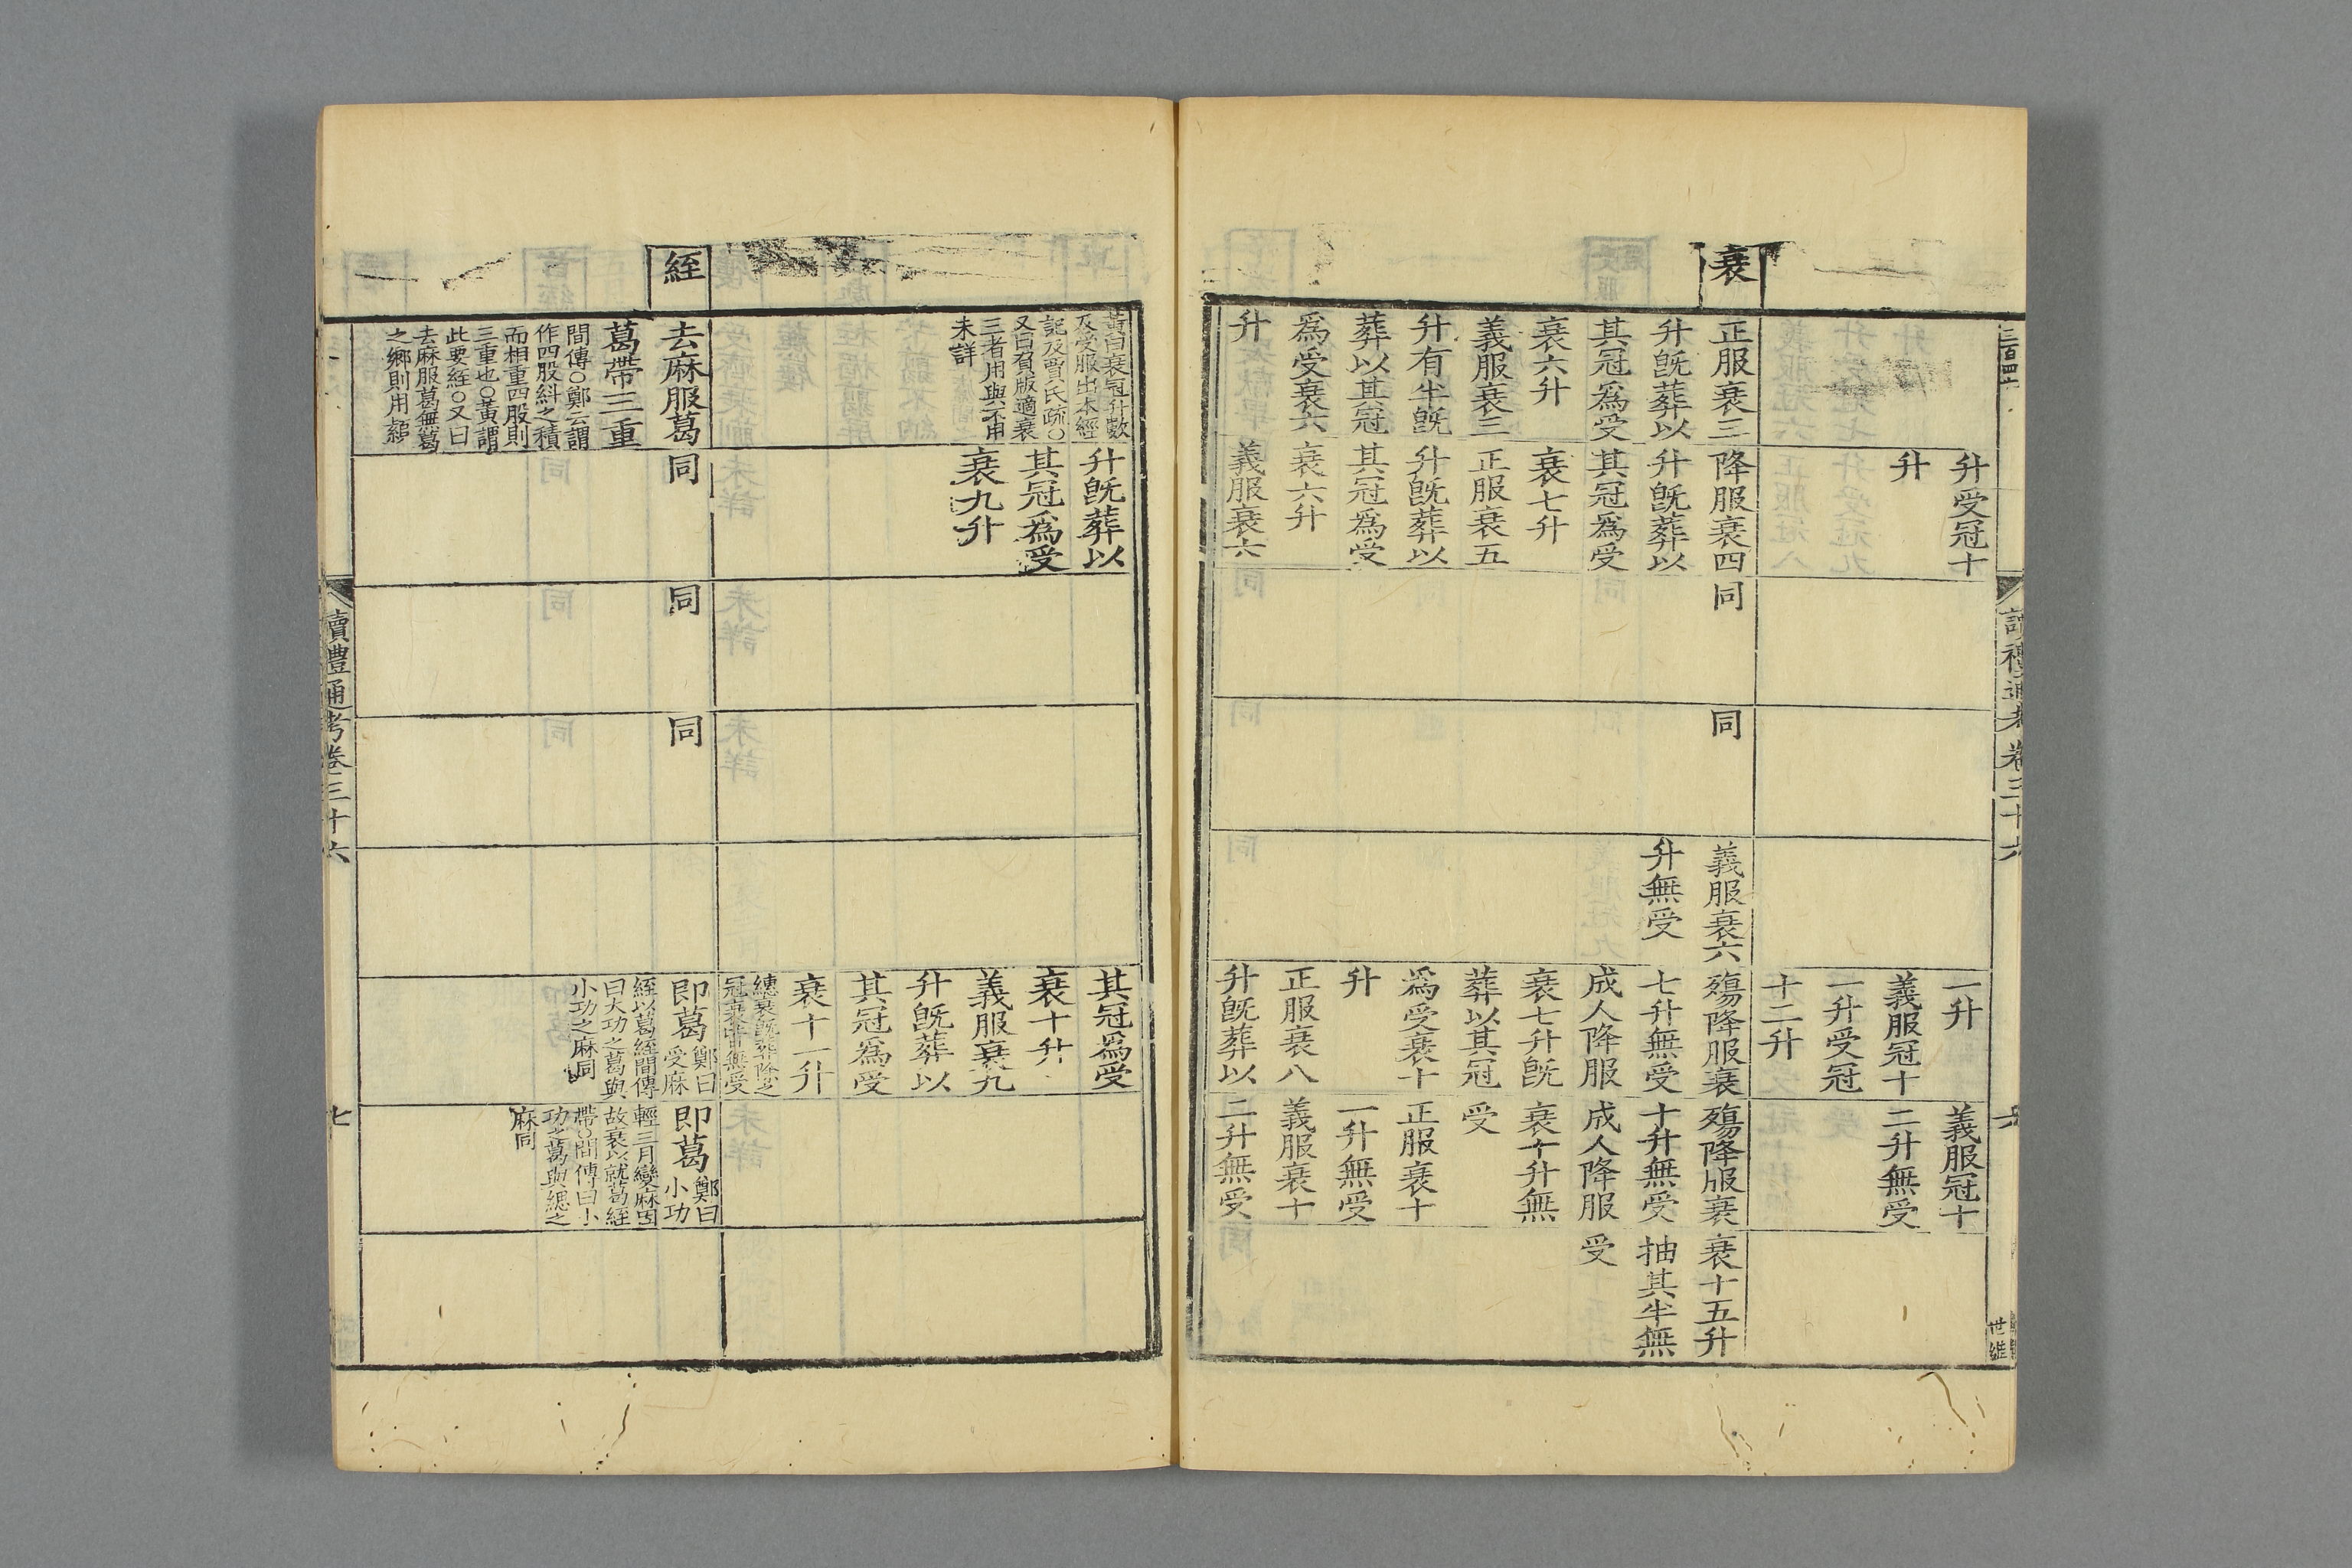 升受冠十
升
一升
義服冠十
一升受冠
十二升
義服冠十
二升無受
衰
正服衰三
升旣葬以
其冠爲受
衰六升
義服衰三
升有半旣
葬以其冠
爲受衰六
升
降服衰四
升旣葬以
其冠爲受
衰七升
正服衰五
升旣葬以
其冠爲受
衰六升
義服衰六
同
同
義服衰六
升無受
殤降服衰
七升無受
成人降服
衰七升旣
葬以其冠
爲受衰十
升
正服衰八
升旣葬以
殤降服衰
十升無受
成人降服
衰十升無
受
正服衰十
一升無受
義服衰十
二升無受
衰十五升
抽其半無
受
讀禮通考卷三十六
世維
黃曰衰冠升數
及受服出本經
記及賈氏疏〇
又曰負版適衰
三者用與不用
未詳
升旣葬以
其冠爲受
衰九升
其冠爲受
衰十升
義服衰九
升旣葬以
其冠爲受
衰十一升
繐衰旣葬除之
冠衰皆無受
絰
去麻服葛
葛帶三重
間傳〇鄭云謂
作四股糾之積
而相重四股則
三重也〇黃謂
此要絰〇又曰
去麻服葛無葛
之鄉則用䌹
同
同
同
即葛
鄭曰
受麻
絰以葛絰間傳
曰大功之葛與
小功之麻同
即葛
鄭曰
小功
輕三月變麻因
故衰以就葛絰
帶〇間傳曰小
功之葛與緦之
麻同
讀禮通考卷三十六
七